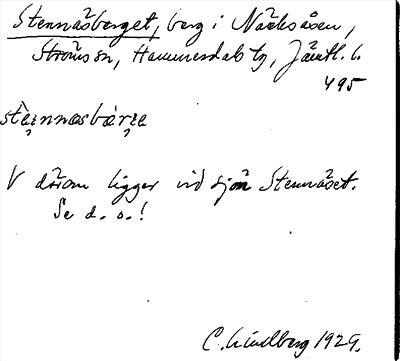 Stennäsberget, berg i Näckåsen,
Ströms sn, Hammerdals tg, Jämtl. l.
495
ste̩i̩nnæsbær̩i̩e
V därom ligger vid sjön Stennäset.
Se d. o.!
C. Lindberg 1929.